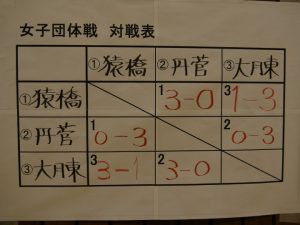 女子団体戦 対戦表
①猿橋 ②丹菅 ③大月東
①猿橋 1 3-0 3 1-3
②丹菅 1 0-3 2 0-3
③大月東 3 3-1 2 3-0